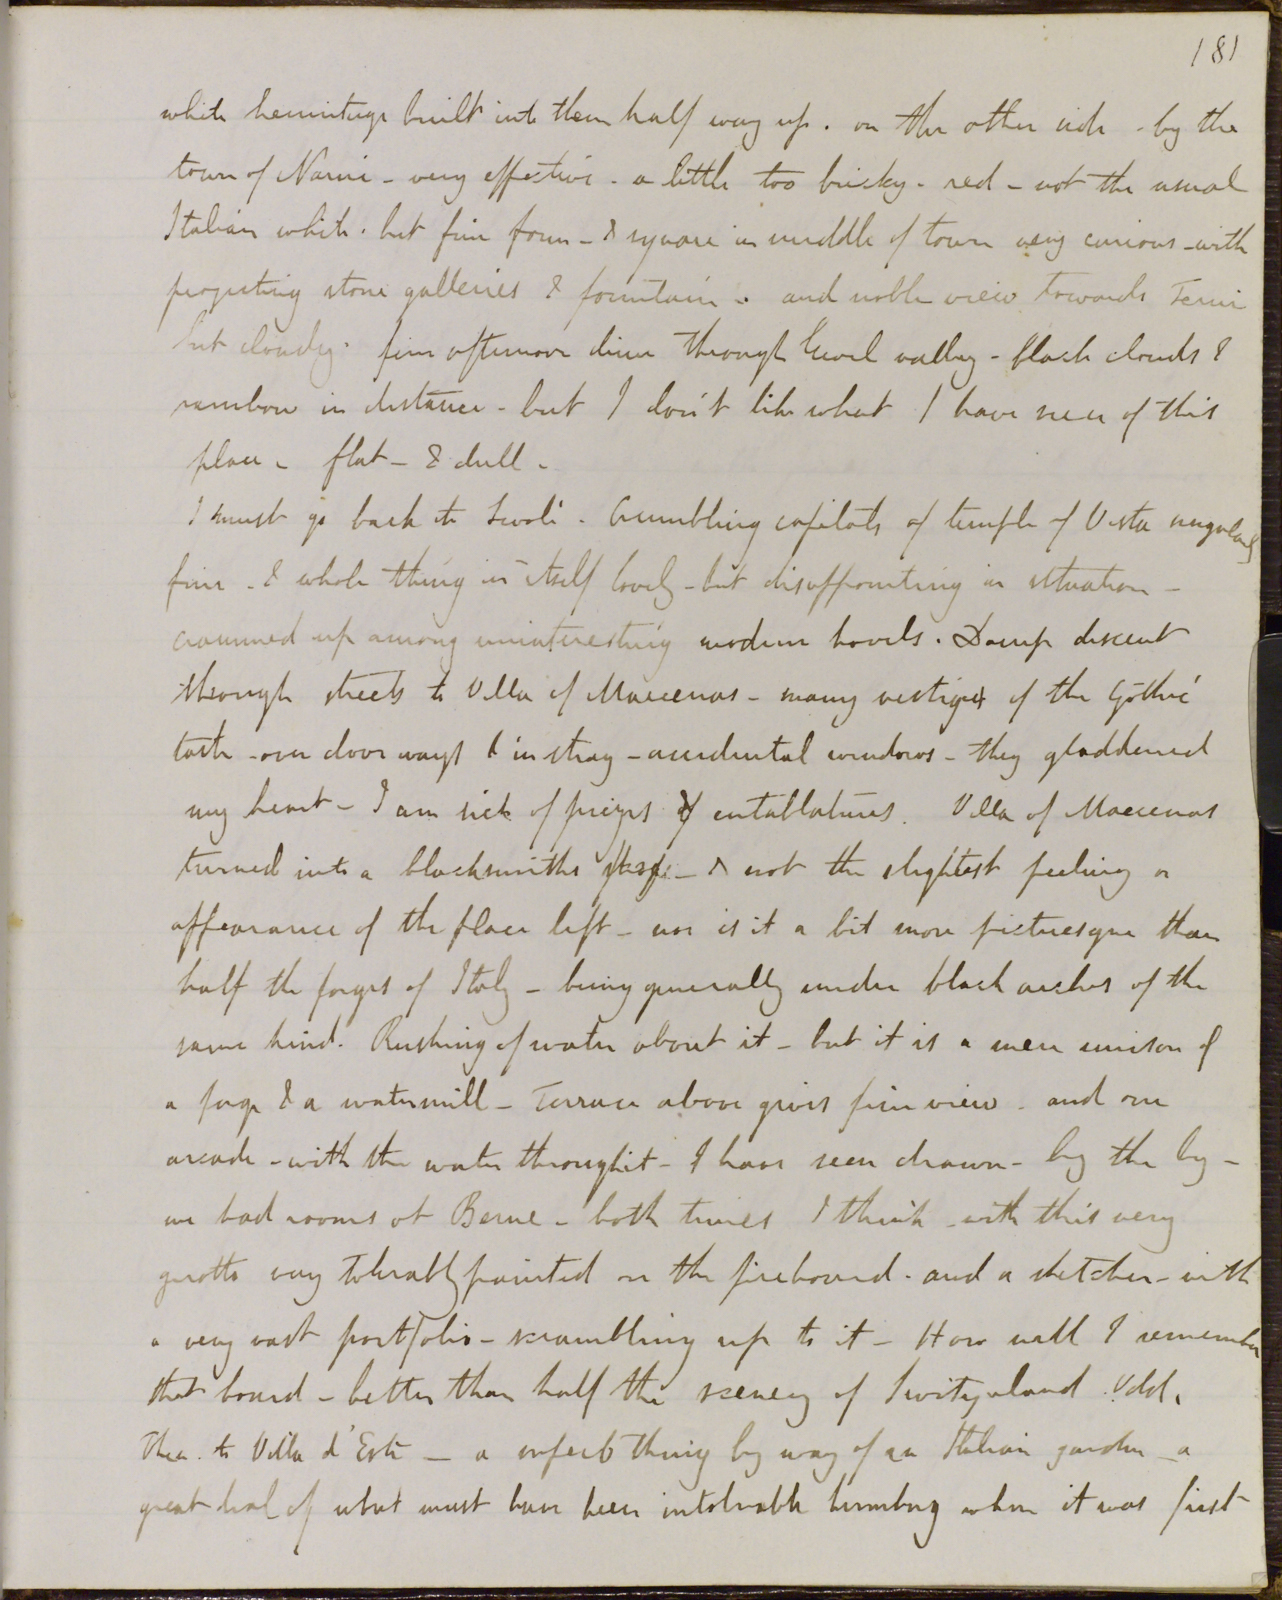 181
white hermitage built into them half way up. on the other side - by the
town of Narni - very effective - a little too bricky - red - not the usual
Italian white. but fine form - & square in middle of town very curious - with
projecting stone galleries & fountain. and noble view towards Terni
but cloudy. fine afternoon drive through level valley - black clouds &
rainbow in distance - but I don't like what I have seen of this
place - flat - & dull -
I must go back to Tivoli. Crumbling capitals of temple of Vesta singularly
fine - & whole thing in itself lovely - but disappointing in situation -
crammed up among uninteresting modern hovels. Damp descent
through streets to Villa of Maecenas - many vestiges of the Gothic
taste - over door ways & in stray - accidental windows - they gladdened
my heart - I am sick of friezes & entablatures. Villa of Maecenas
turned into a blacksmiths - & not the slightest feeling or
appearance of the place left - nor is it a bit more picturesque than
half the forges of Italy - being generally under black arches of the
same kind. Rushing of water about it - but it is a mere unison of
a forge & a watermill - Terrace above gives fine view. and one
arcade - with the water through it - I have seen drawn - by the by -
we had rooms at Berne - both times I think - with this very
grotto very tolerably painted on the fireboard. and a sketcher - with
a very vast portfolio - scrambling up to it - How well I remember
that board - better than half the scenery of Switzerland. Odd.
Then to Villa d'Este - a superb thing by way of an Italian garden - a
great deal of what must have been intolerable humbug when it was first